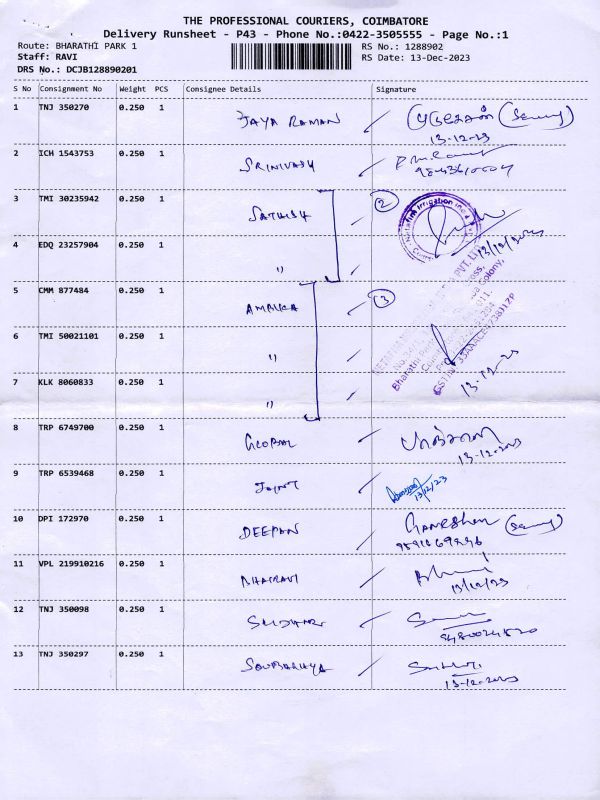 THE PROFESSIONAL COURIERS, COIMBATORE
Delivery Runsheet - P43 - Phone No.:0422-3505555 - Page No.:1
Route: BHARATHI PARK 1 RS No.: 1288902
Staff: RAVI RS Date: 13-Dec-2023
DRS No.: DCJB128890201
S No Consignment No Weight PCS Consignee Details Signature
1 TNJ 350270 0.250 1 JAYA RAMAN
13-12-23
2 ICH 1543753 0.250 1 SRINIVASH
3 TMI 30235942 0.250 1 SATHISH 2
4 EDQ 23257904 0.250 1 " 13/12/2023
5 CMM 877484 0.250 1 3
6 TMI 50021101 0.250 1 "
7 KLK 8060833 0.250 1 " 13-12-23
8 TRP 6749700 0.250 1 GLOBAL
13-12-2023
9 TRP 6539468 0.250 1 JOINT
13/12/23
10 DPI 172970 0.250 1 DEEPAN Ganeshan
11 VPL 219910216 0.250 1 BHAIRAVI
13/12/23
12 TNJ 350098 0.250 1
13 TNJ 350297 0.250 1
13-12-2023